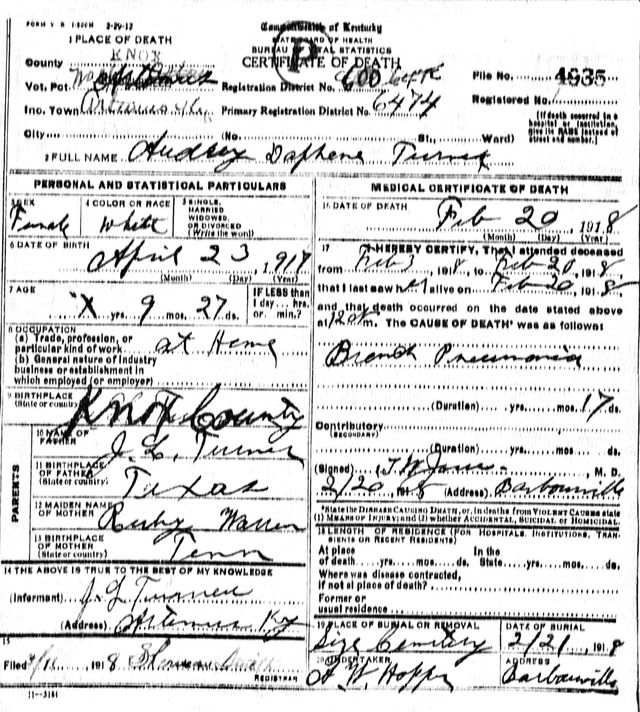 FORM V. S. 1-500M 2-29-12
Commonwealth of Kentucky
STATE BOARD OF HEALTH
BUREAU OF VITAL STATISTICS
CERTIFICATE OF DEATH
1 PLACE OF DEATH
County KNOX
Vot. Pct. Registration District No. 600 File No. 4935
Inc. Town Artemus Ky. Primary Registration District No. 6474 Registered No.
City (No. St., Ward) [If death occurred in a hospital or institution, give its NAME instead of street and number.]
2 FULL NAME Audrey Daphene Turner
PERSONAL AND STATISTICAL PARTICULARS
3 SEX Female
4 COLOR OR RACE White
5 SINGLE, MARRIED WIDOWED, OR DIVORCED (Write the word)
6 DATE OF BIRTH April 23, 1917
(Month) (Day) (Year)
7 AGE X yrs. 9 mos. 27 ds. IF LESS than 1 day ... hrs. or min.?
8 OCCUPATION
(a) Trade, profession, or particular kind of work at Home
(b) General nature of industry business or establishment in which employed (or employer)
9 BIRTHPLACE (State or country) Knox County
PARENTS
10 NAME OF FATHER J. L. Turner
11 BIRTHPLACE OF FATHER (State or country) Texas
12 MAIDEN NAME OF MOTHER Ruby Warren
13 BIRTHPLACE OF MOTHER (State or country) Tenn
14 THE ABOVE IS TRUE TO THE BEST OF MY KNOWLEDGE
(Informant) J. L. Turner
(Address) Artemus Ky
15
Filed 1918 REGISTRAR
11--3184
MEDICAL CERTIFICATE OF DEATH
16 DATE OF DEATH Feb 20, 1918
(Month) (Day) (Year)
17 I HEREBY CERTIFY, That I attended deceased
from Feb 3, 1918, to Feb 20, 1918
that I last saw h alive on Feb 20, 1918
and that death occurred on the date stated above
at 12 m. The CAUSE OF DEATH* was as follows:
Bronch Pneumonia
(Duration) yrs. mos. 17 ds.
Contributory (SECONDARY)
(Duration) yrs. mos. ds.
(Signed) M. D.
2/20 1918 (Address) Barbourville
*State the DISEASE CAUSING DEATH, or, in deaths from VIOLENT CAUSES state (1) MEANS OF INJURY; and (2) whether ACCIDENTAL, SUICIDAL or HOMICIDAL.
18 LENGTH OF RESIDENCE (FOR HOSPITALS, INSTITUTIONS, TRANSIENTS OR RECENT RESIDENTS)
At place of death yrs. mos. ds. In the State yrs. mos. ds.
Where was disease contracted,
If not at place of death?
Former or usual residence
19 PLACE OF BURIAL OR REMOVAL Cemetery
DATE OF BURIAL 2/21 1918
20 UNDERTAKER A. W. Hopper
ADDRESS Barbourville